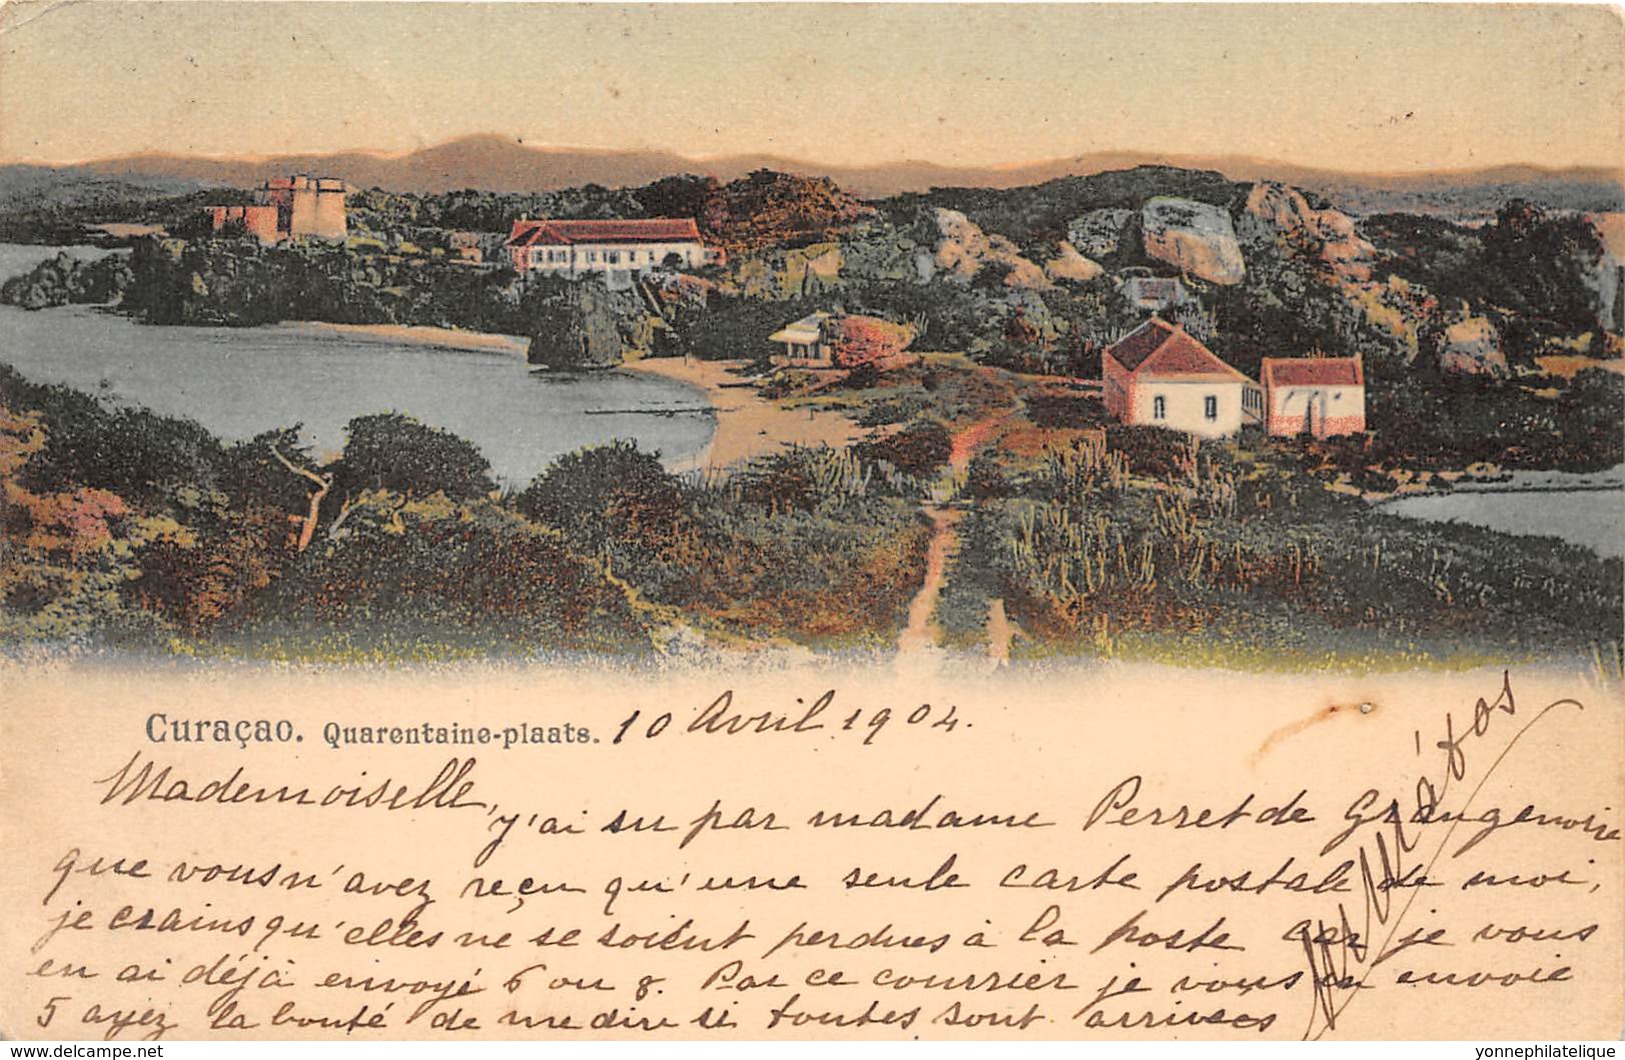 Curaçao. Quarentaine-plaats. 10 Avril 1904.
Mademoiselle,
J'ai su par madame Perret de
que vous n'avez reçu qu'une seule carte postale de moi,
je crains qu'elles ne se soient perdues à la poste car je vous
en ai déjà envoyé 6 ou 8. Par ce courrier je vous en envoie
5 ayez la bonté de me dire si toutes sont arrivées
delcampe.net
yonnephilatelique